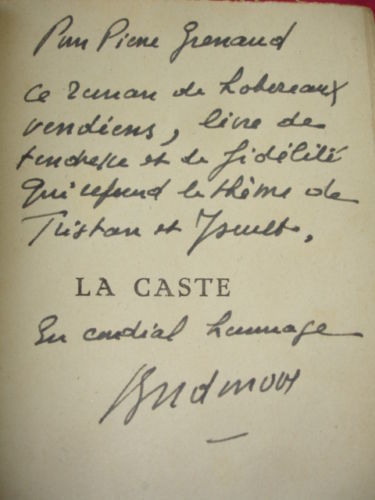 Pour Pierre Grenaud
ce roman de hobereaux
vendéens, livre de
tendresse et de fidélité
qui reprend le thème de
Tristan et Yseult.
LA CASTE
En cordial hommage